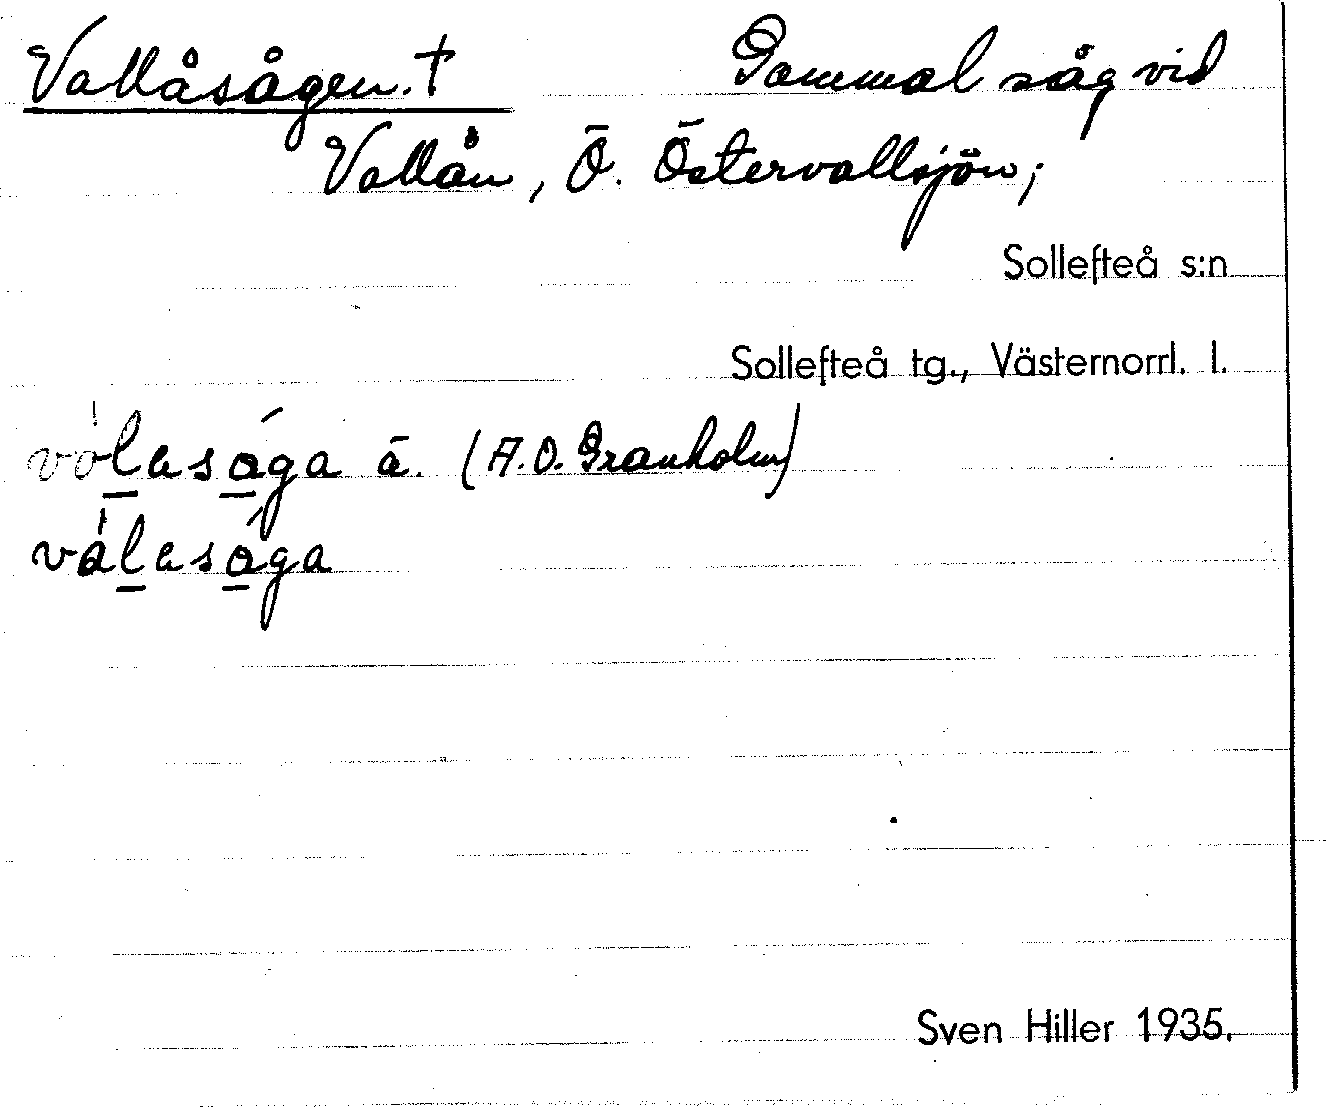 Vallåsågen. † Gammal såg vid
Vallån, Ö. Östervallsjön;
Sollefteå s:n
Sollefteå tg., Västernorrl. l.
ā. (A.O. Granholm)
Sven Hiller 1935.